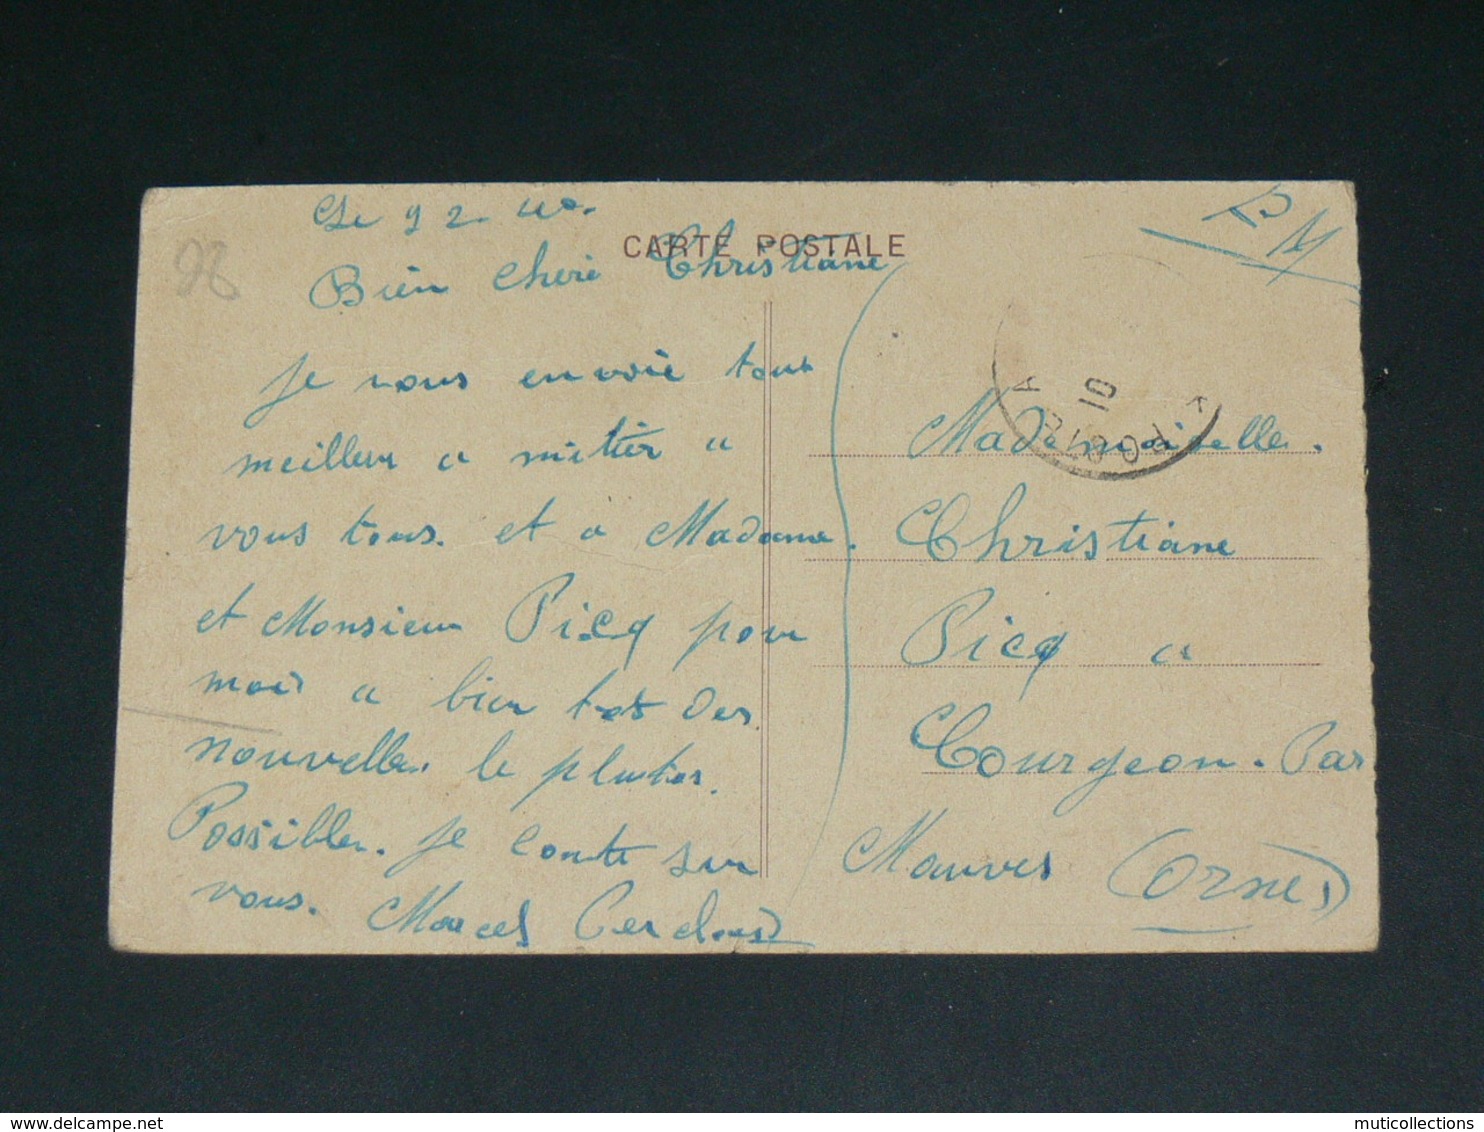 Le 9 2 40.
CARTE POSTALE
Bien cheri Christiane
je vous envoie tous
meilleur a mitier a
vous tous. et a Madame.
et Monsieur Picq pour
moi a bien tot des
nouvelles. le plutos.
Possible. je conte sur
vous. Marcel
FM
Mademoiselle.
Christiane
Picq a
Courgeon. Par
Mauves (Orne)
98
10
POSTE
delcampe.net
muticollections